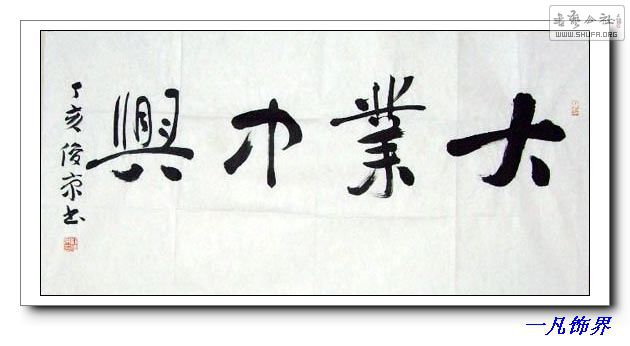 书艺公社
WWW.SHUFA.ORG
大業中興
丁亥俊京书
一凡饰界